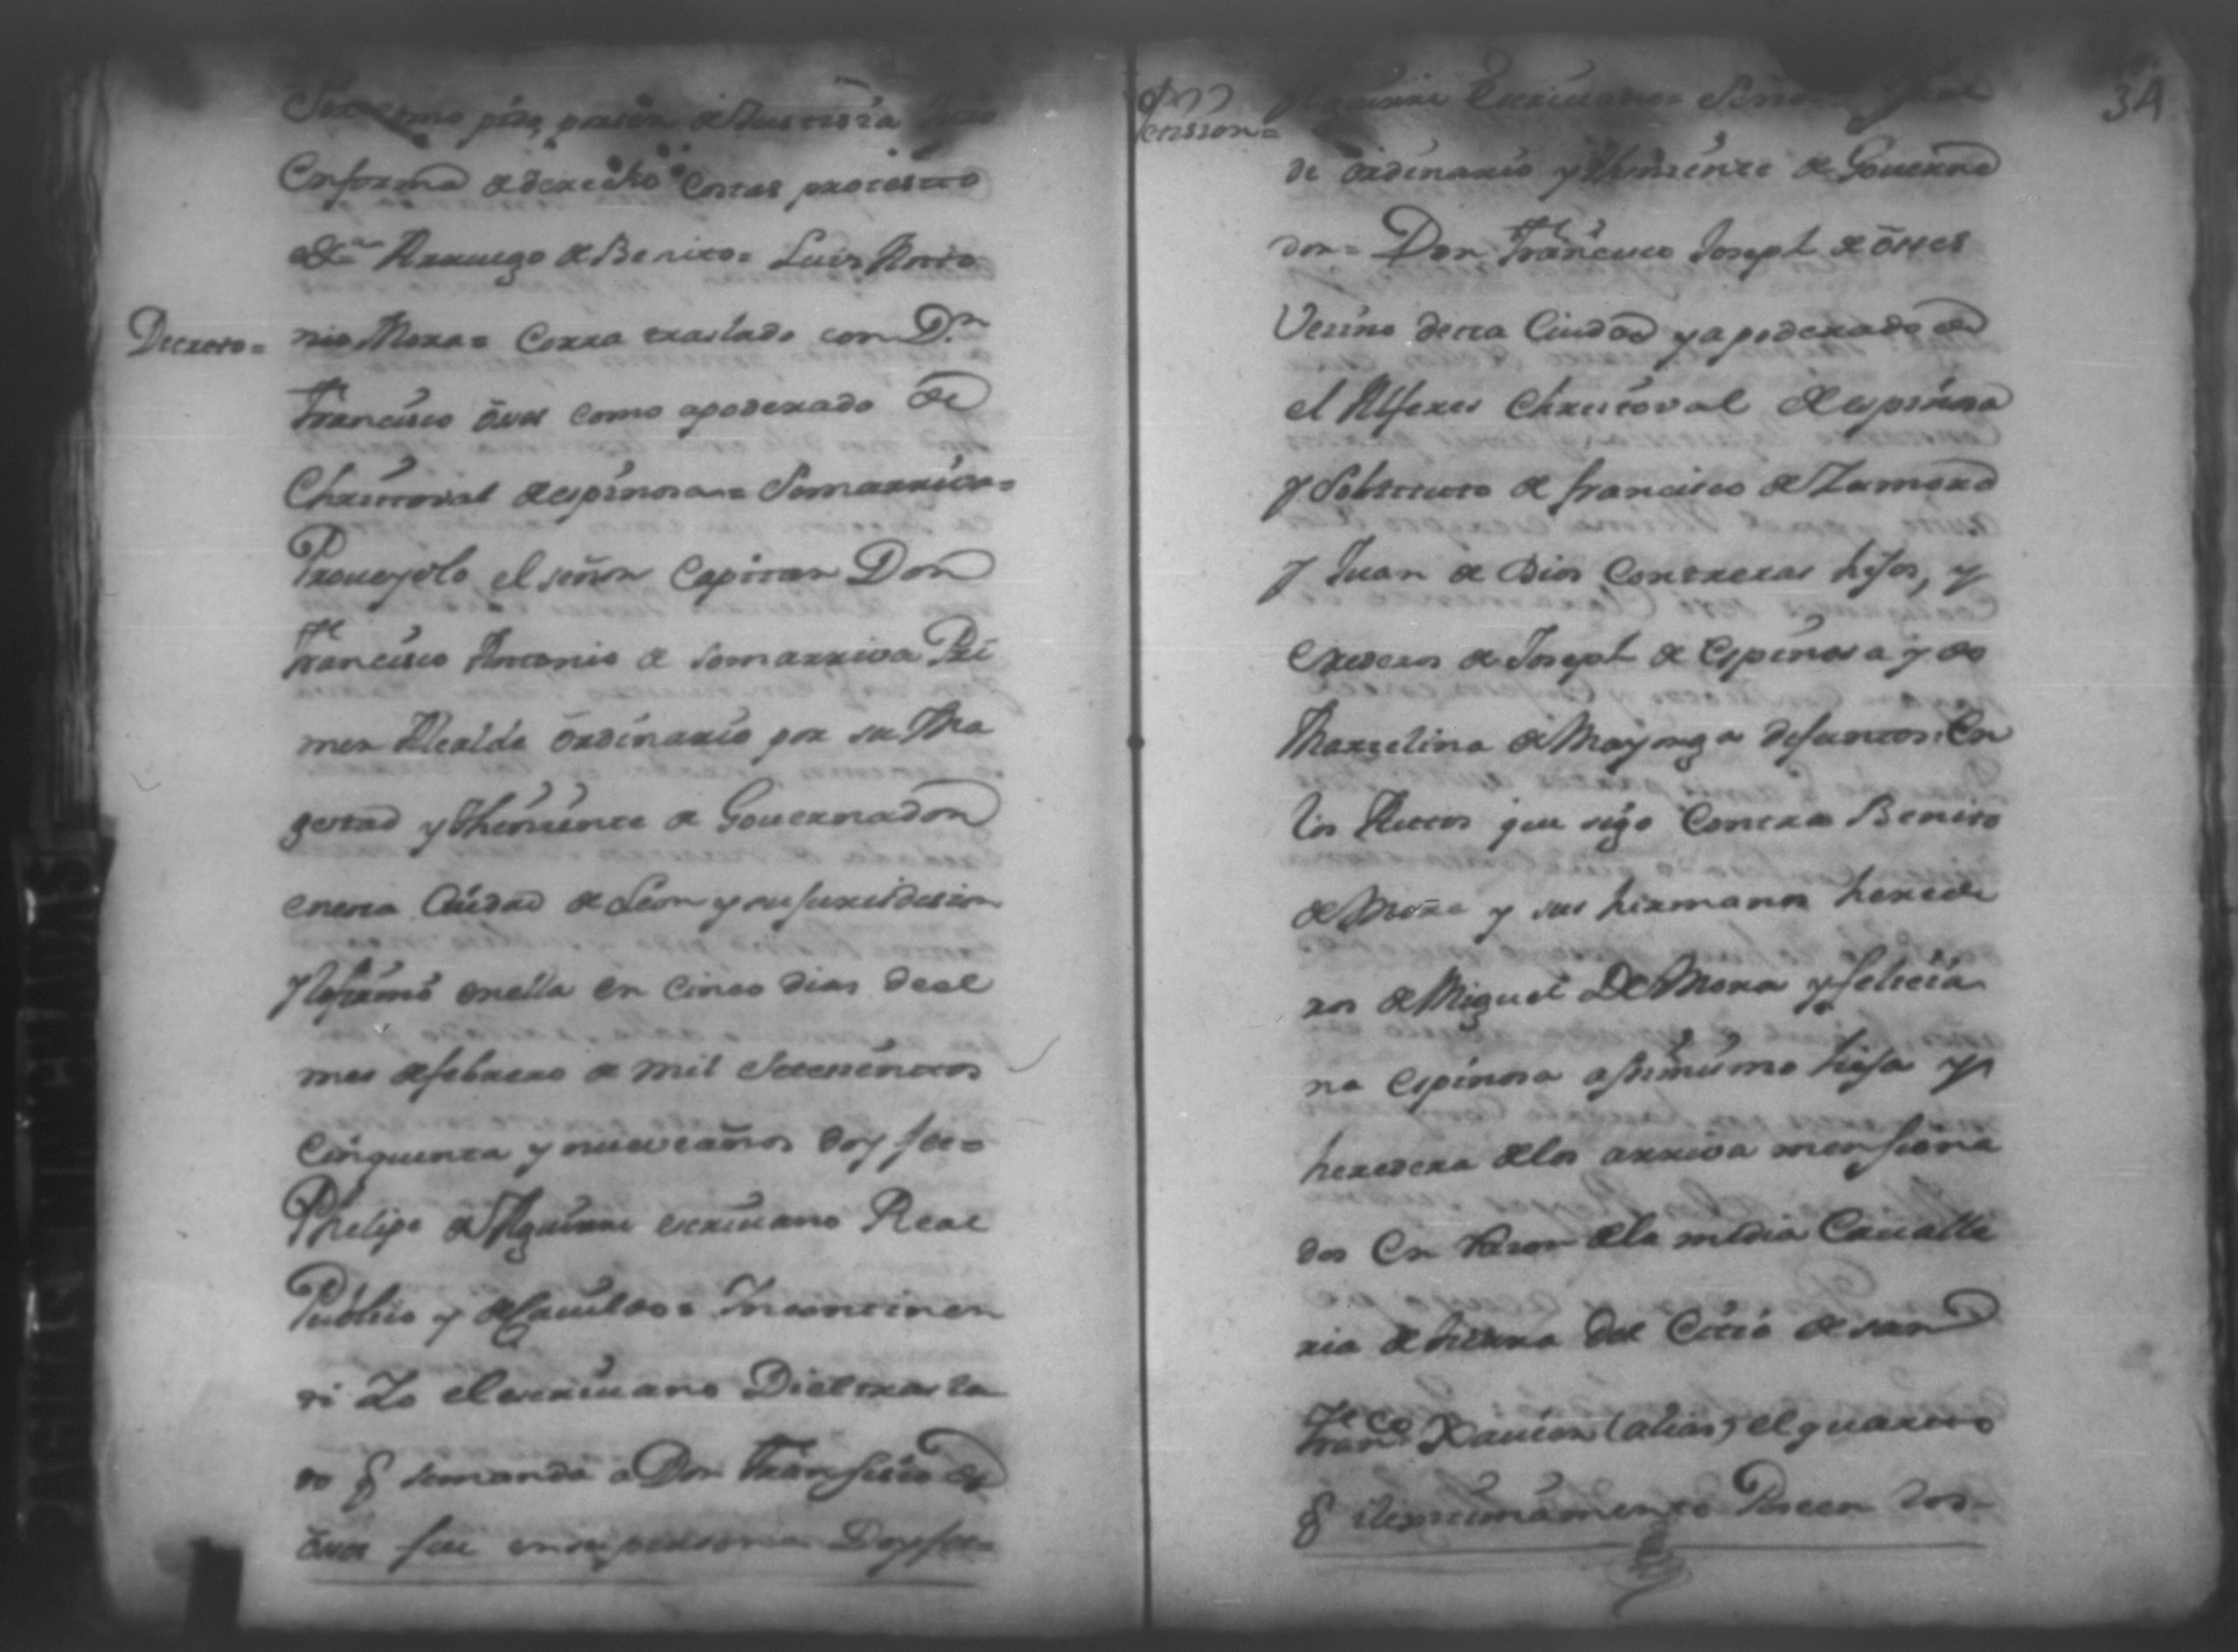 pido justicia Juro
En forma de derecho Costas protesto
A Ruego de Benito = Luis Anto
Decreto =
nio Mora = Corra traslado con Dn
Francisco como apoderado de
Christoval de espinosa = Somarriva =
Proueyolo el señor Capitan Don
Francisco Antonio de Somarriva Pri
mer Alcalde ordinario por su Ma
gestad y Theniente de Gouernador
enesta Ciudad de Leon y su jurisdiszion
y lo firmó enella en Cinco dias de el
mes de febrero de mil Setesientos
Cinquenta y nueve años doy fee =
Phelipe de Aguirre escriuano Real
Publico y de Cauildo = Incontinen
ti Yo el escriuano Di el trasla
do q se manda a Don Fransisco de
fee en su persona Doy fee =
34
Aguirre Escriuano =
de ordinario y Theniente de Gouerna
dor = Don Francisco Joseph de
Vezino desta Ciudad y apoderado de
el Alferes Christoval de espinosa
y Sobstituto de francisco de Zamora
y Juan de Dios Contreras hijos, y
erederos de Joseph de Espinosa y de
Marzelina de Mayorga defuntos: En
los Autos que sigo Contra Benito
de Mora y sus hermanos herede
ros de Miguel De Mora y felicia
na espinosa asimismo hija y
heredera de los arriva mensiona
dos En razon de la media Cavalle
ria de tierra del Citio de san
Franco Xavier (alias) el guarumo
q ilexitimamente Poseen los =